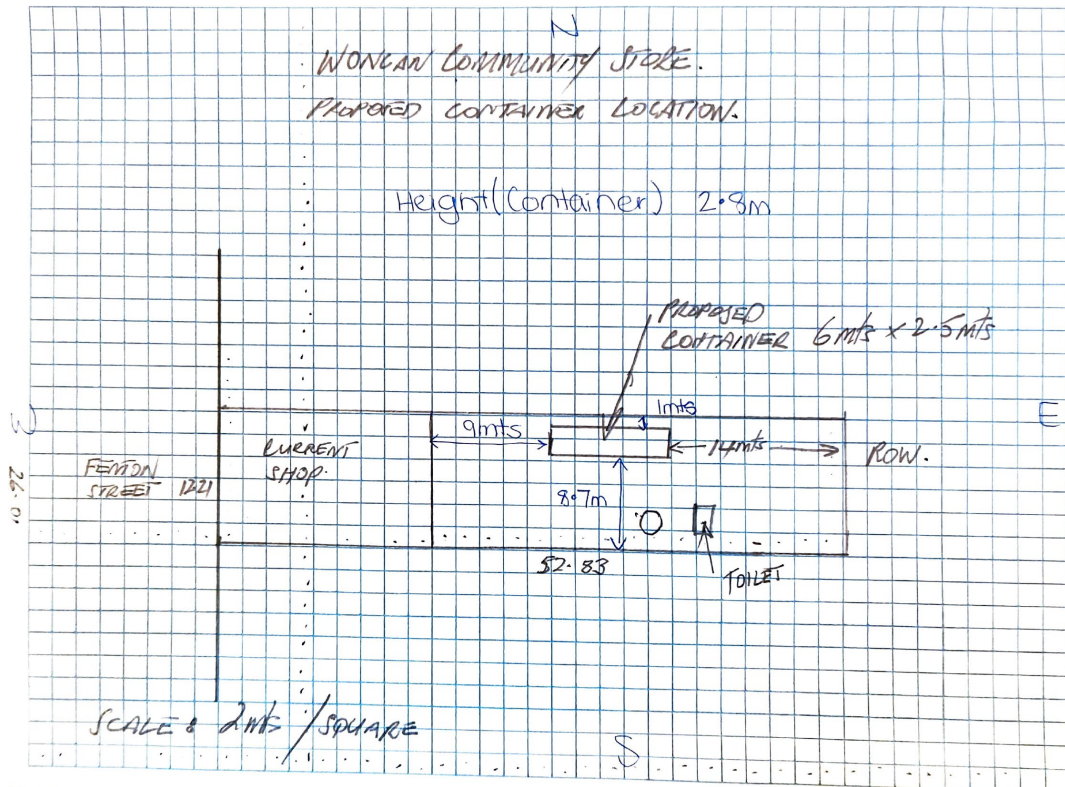 N
WONGAN COMMUNITY STORE.
PROPOSED CONTAINER LOCATION.
Height(Container) 2.8m
PROPOSED
CONTAINER 6mts x 2.5mts
1mts
E
9mts
14mts
ROW.
CURRENT
SHOP.
FENTON
STREET
W
26.0
8.7m
52.83
TOILET
SCALE: 2mts / SQUARE
S